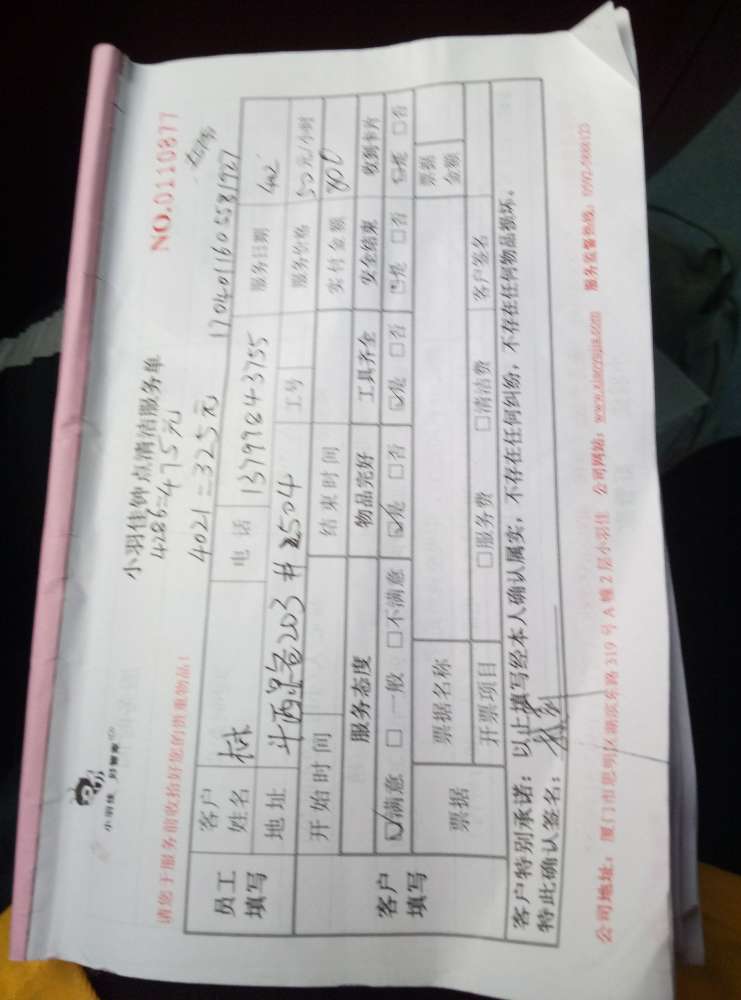 小羽佳 · 好管家
小羽佳钟点清洁服务单
NO.0110877
4286=475元
4021=325元
请您于服务前收拾好您的贵重物品！
1704011605581927
员工填写
客户姓名 林 电话 13799843755 服务日期 4.2
地址 斗西路203#2504 工号 服务价格 50元/小时
开始时间 结束时间 实付金额 800
客户填写
服务态度 物品完好 工具齐全 安全结束 收到卡片
☑满意 □一般 □不满意 ☑是 □否 ☑是 □否 ☑是 □否 ☑是 □否
票据 票据名称 票据金额
开票项目 □服务费 □清洁费 客户签名
客户特别承诺：以上填写经本人确认属实，不存在任何纠纷，不存在任何物品损坏。
特此确认签名：
公司地址：厦门市思明区湖滨东路319号A幢2层小羽佳 公司网站：www.xiaoyujia.com 服务监督热线：0592-5888123